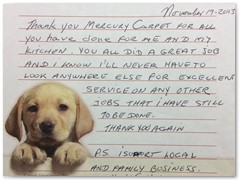 November 19-2013
Thank you Mercury Carpet for all
you have done for me and my
kitchen. You all did a great job
and I know I'll never have to
look anywhere else for excellent
service on any other
jobs that I have still
to be done.
Thank you again
as I support local
and family business.